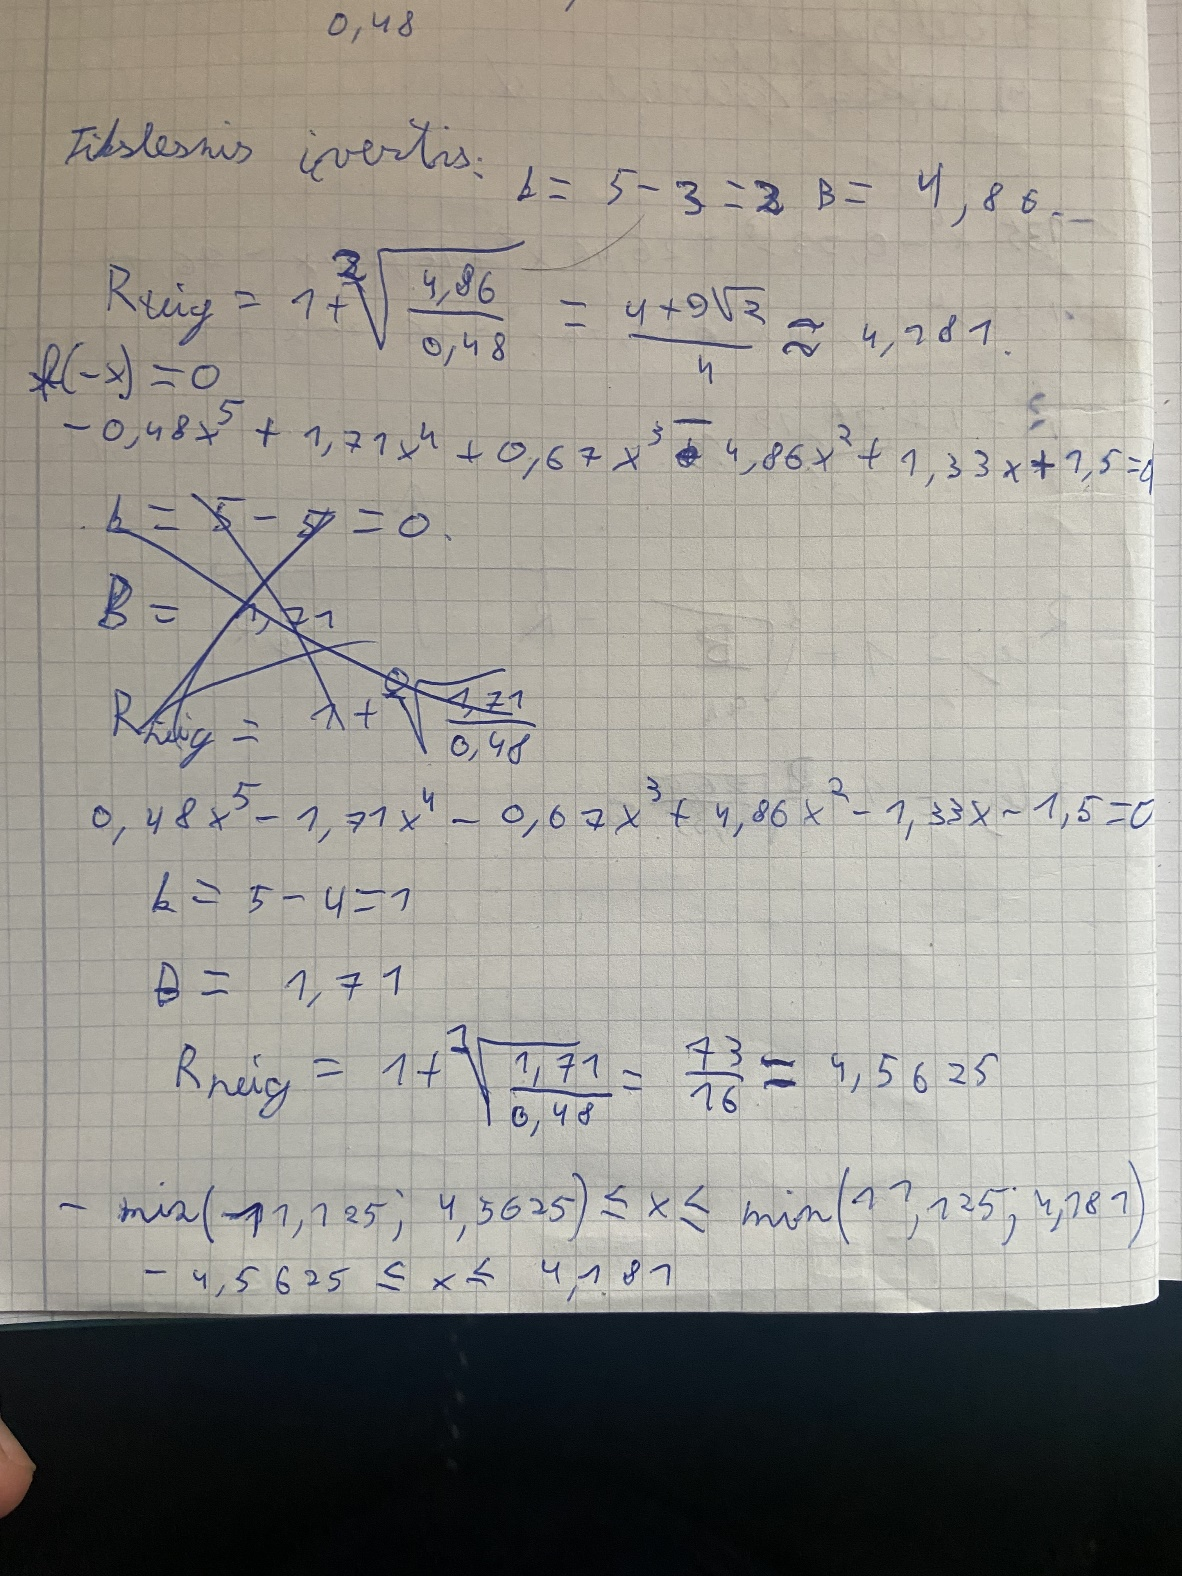 0,48
Tikslesnis įvertis:
k = 5 - 3 = 2 B = 4,86
R teig = 1 + ²√(4,86/0,48) = (4+9√2)/4 ≈ 4,181.
f(-x) = 0
- 0,48x⁵ + 1,71x⁴ + 0,67x³ - 4,86x² + 1,33x + 1,5 = 0
k = 5 - 5 = 0.
B = 1,71
R neig = 1 + ⁰√(1,71/0,48)
0,48x⁵ - 1,71x⁴ - 0,67x³ + 4,86x² - 1,33x - 1,5 = 0
k = 5 - 4 = 1
B = 1,71
R neig = 1 + ¹√(1,71/0,48) = 73/16 = 4,5625
- min(11,125; 4,5625) ≤ x ≤ min(11,125; 4,181)
- 4,5625 ≤ x ≤ 4,181